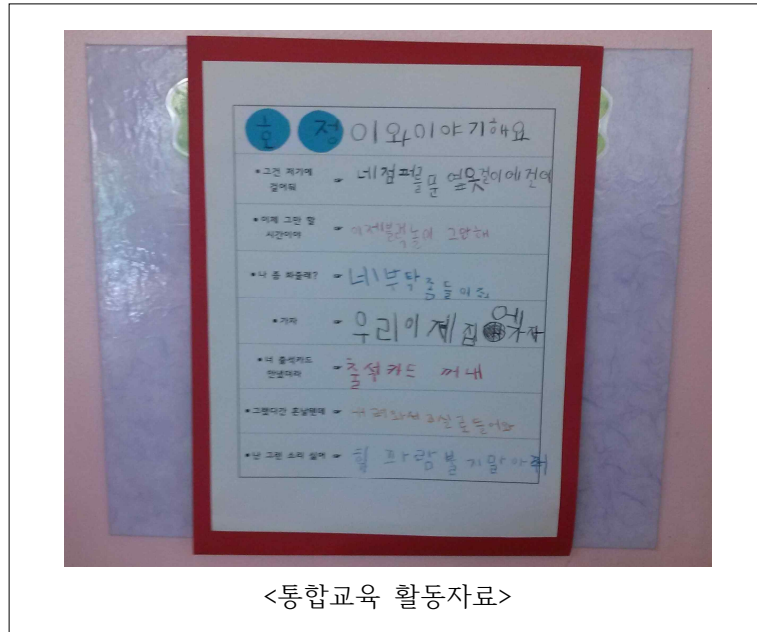 효 정이와이야기해요
•그건 저기에
걸어줘 ☞ 네점퍼를문 옆옷걸이에건어
•이제 그만 할
시간이야 ☞ 이제블럭놀이 그만해
•나 좀 봐줄래? ☞ 네부탁좀들어줘
•가자 ☞ 우리이제집에가자
•너 출석카드
안냈더라 ☞ 출석카드 꺼내
•그랬다간 혼날텐데 ☞ 내려와서교실로들어와
•난 그런 소리 싫어 ☞ 휘파람불기말아줘
<통합교육 활동자료>